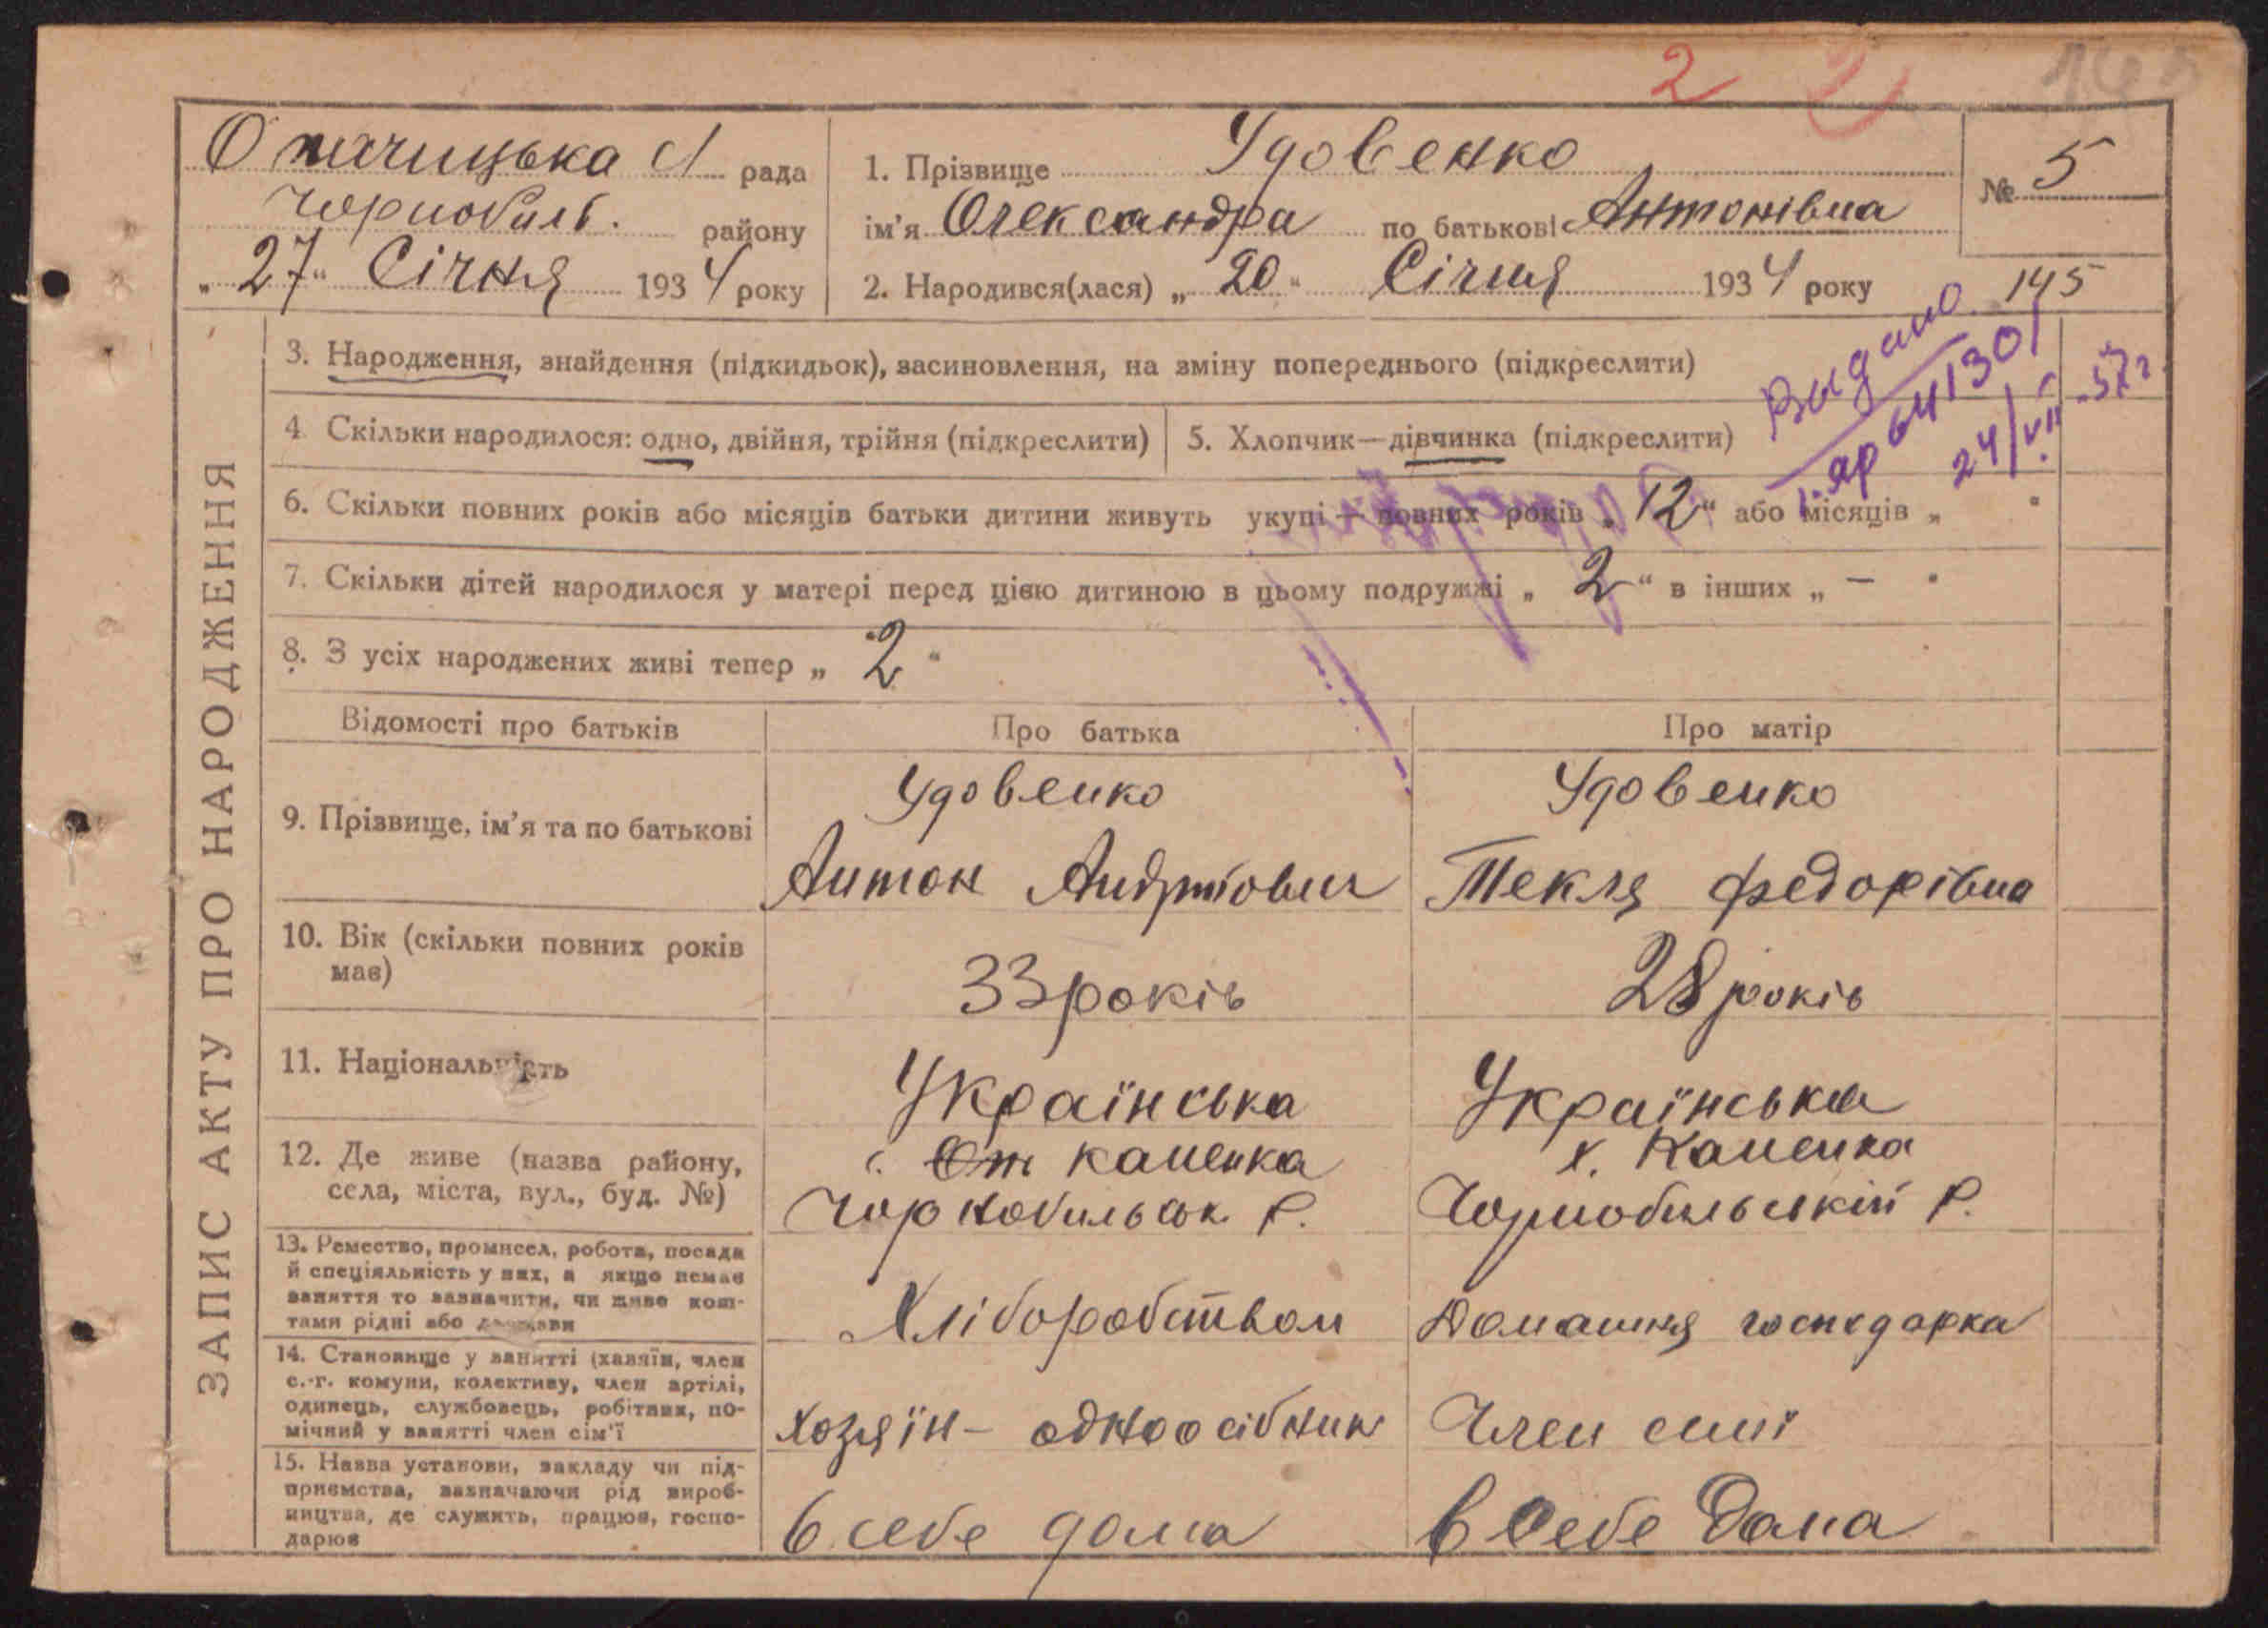 2 2
Опачицька С/ рада
Чорнобиль. району
„27“ Січня 1934 року
1. Прізвище Удовенко
ім'я Олександра по батькові Антонівна
2. Народився(лася) „20“ Січня 1934 року
№ 5
145
ЗАПИС АКТУ ПРО НАРОДЖЕННЯ
3. Народження, знайдення (підкидьок), засиновлення, на зміну попереднього (підкреслити)
Выдано
24/VII.-57г
4 Скільки народилося: одно, двійня, трійня (підкреслити)
5. Хлопчик—дівчинка (підкреслити)
6. Скільки повних років або місяців батьки дитини живуть укупі — повних років „12“ або місяців „ “
7. Скільки дітей народилося у матері перед цією дитиною в цьому подружжі „2“ в інших „ — “
8. З усіх народжених живі тепер „2“
Відомості про батьків
Про батька
Про матір
9. Прізвище, ім'я та по батькові
Удовенко
Антон Андрійович
Удовенко
Текля Федорівна
10. Вік (скільки повних років
має)
33 років
28 років
11. Національність
Українська
Українська
12. Де живе (назва району,
села, міста, вул., буд. №)
с. Каменка
Чорнобильськ. Р.
х. Каменка
Чорнобильский Р.
13. Ремество, промисел, робота, посада
й спеціяльність у них, а якщо немає
заняття то зазначити, чи живе кош-
тами рідні або держави
Хліборобством
Домашня господарка
14. Становище у занятті (хазяїн, член
с.-г. комуни, колективу, член артілі,
одинець, службовець, робітник, по-
мічний у занятті член сім'ї
Хозяїн – одноосібник
Член симї
15. Назва установи, закладу чи під-
приємства, зазначаючи рід вироб-
ництва, де служить, працює, госпо-
дарює
в себе дома
в себе дома